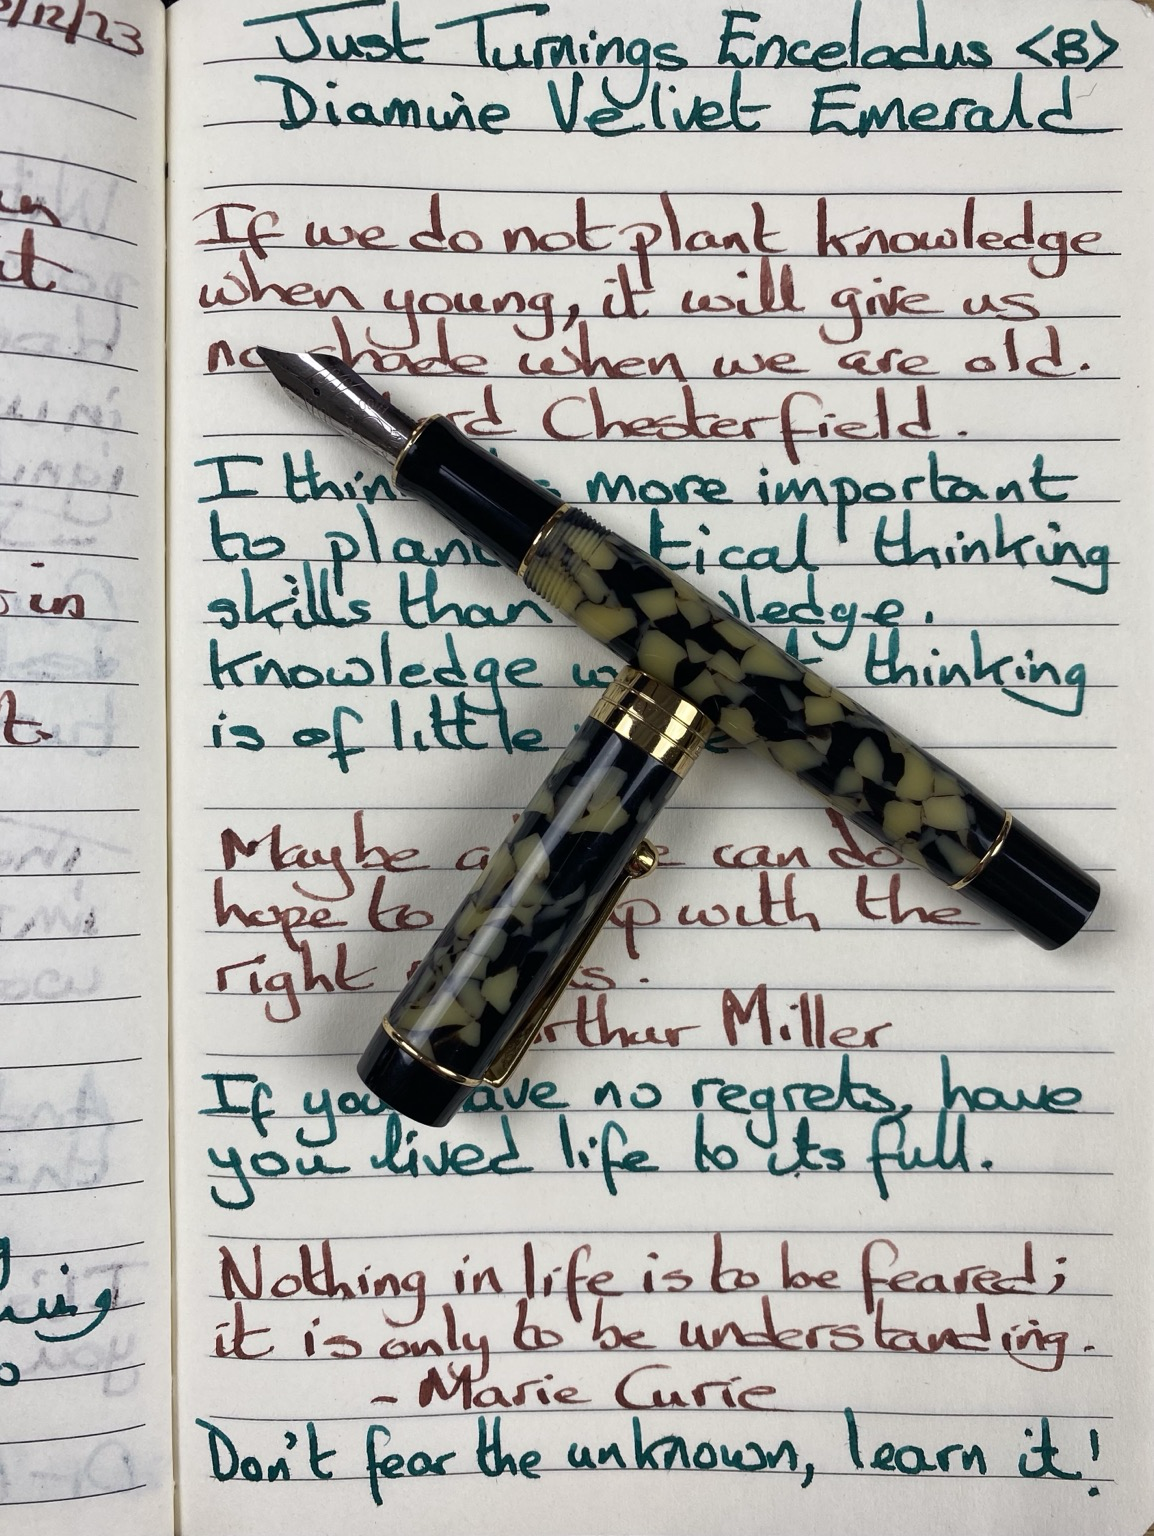 2/12/23
in
it
in
t.
hing
o
Just Turnings Enceladus <B>
Diamine Velivet Emerald
If we do not plant knowledge
when young, it will give us
no shade when we are old.
Chesterfield.
I more important
to thinking
skills than
knowledge thinking
is of little
Maybe can do
hope to with the
right
Miller
If you have no regrets, have
you lived life to its full.
Nothing in life is to be feared;
it is only to be understanding.
- Marie Curie
Don't fear the unknown, learn it!